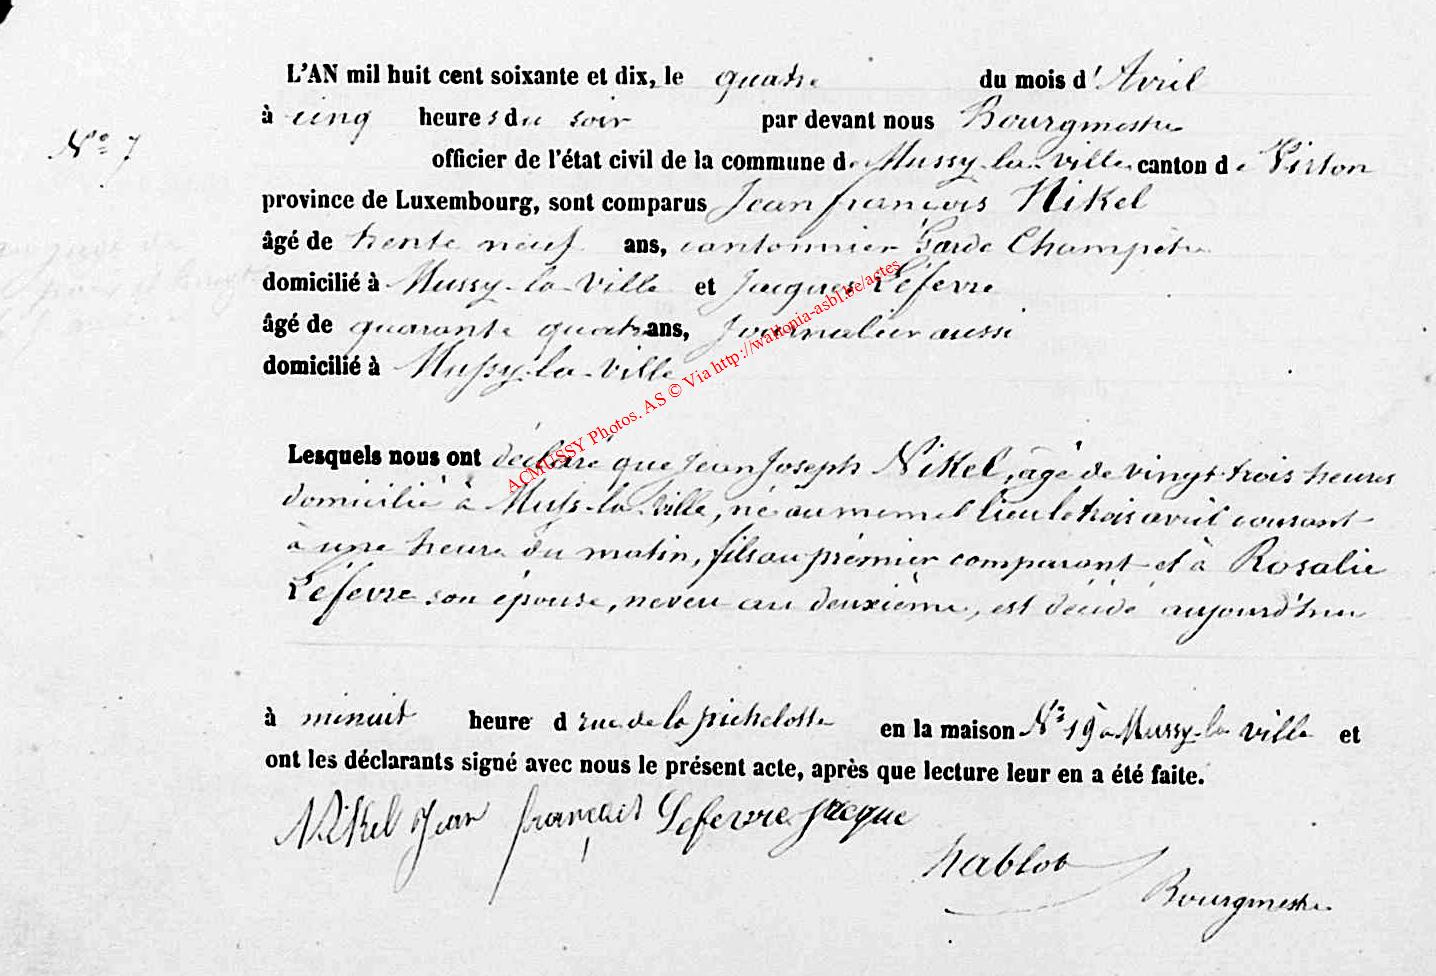 L'AN mil huit cent soixante et dix, le quatre du mois d'Avril
à cinq heures du soir par devant nous Bourgmestre
Nº 7
officier de l'état civil de la commune de Mussy-la-Ville canton de Virton
province de Luxembourg, sont comparus Jean françois Nikel
âgé de trente neuf ans, cantonnier Garde Champêtre
domicilié à Mussy-la-Ville et Jacques Léfevre
âgé de quarante quatre ans, Journalier aussi
domicilié à Mussy-la-Ville
ACMUSSY Photos. AS © Via http://wallonia-asbl.be/actes
Lesquels nous ont déclaré que Jean Joseph Nikel, âgé de vingt trois heures
domicilié à Muss-la-Ville, né au même lieu le trois avril courant
à une heure du matin, fils au prémier comparant et à Rosalie
Léfevre son épouse, neveu au deuxième, est décédé aujourd'hui
à minuit heure d rue de la pichelotte en la maison Nº 19 à Mussy-la-Ville et
ont les déclarants signé avec nous le présent acte, après que lecture leur en a été faite.
Nikel Jean français Lefevre Jacque
hablot
Bourgmestre